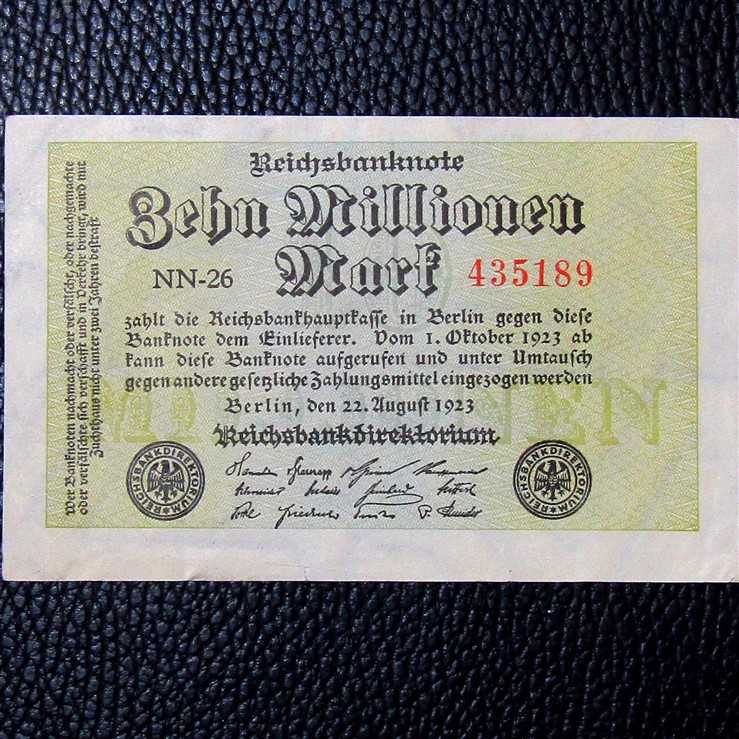 Reichsbanknote
Zehn Millionen
Mark
NN-26
435189
zahlt die Reichsbankhauptkasse in Berlin gegen diese
Banknote dem Einlieferer. Vom 1. Oktober 1923 ab
kann diese Banknote aufgerufen und unter Umtausch
gegen andere gesetzliche Zahlungsmittel eingezogen werden
Berlin, den 22. August 1923
Reichsbankdirektorium
REICHSBANKDIREKTORIUM
REICHSBANKDIREKTORIUM
Wer Banknoten nachmacht oder verfälscht, oder nachgemachte
oder verfälschte sich verschafft und in Verkehr bringt, wird mit
Zuchthaus nicht unter zwei Jahren bestraft